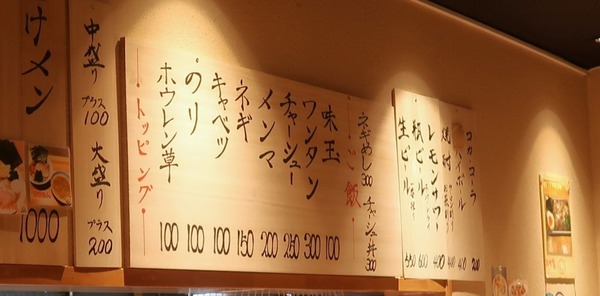 けメン
1000
中盛り プラス 100
大盛り プラス 200
トッピング
ホウレン草 100
のり 100
キャベツ 100
ネギ 150
メンマ 200
チャーシュー 250
ワンタン 300
味玉 100
ご飯
ネギめし 300
チャーシュー丼 300
生ビール 550
瓶ビール 600
レモンサワー 400
ハイボール 400
コカ・コーラ 200